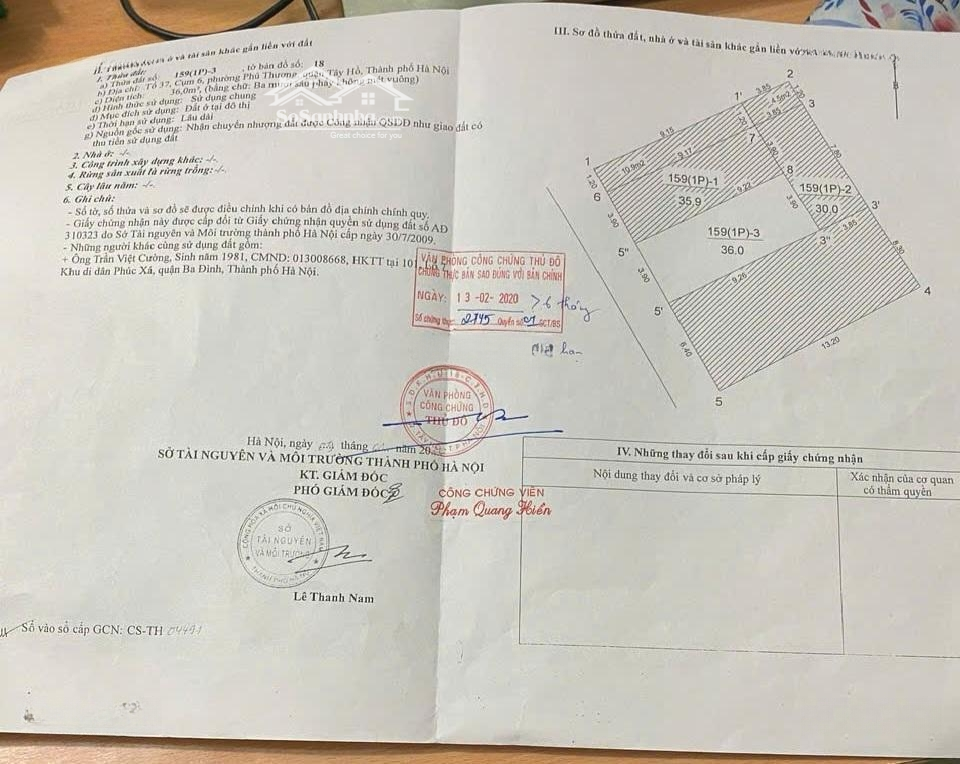 II. Thửa đất, nhà ở và tài sản khác gắn liền với đất
1. Thửa đất:
a) Thửa đất số: 159(1P)-3 , tờ bản đồ số: 18
b) Địa chỉ: Tổ 37, Cụm 6, phường Phú Thượng, quận Tây Hồ, Thành phố Hà Nội
c) Diện tích: 36,0m², (bằng chữ: Ba mươi sáu phảy không mét vuông)
d) Hình thức sử dụng: Sử dụng chung
đ) Mục đích sử dụng: Đất ở tại đô thị
e) Thời hạn sử dụng: Lâu dài
g) Nguồn gốc sử dụng: Nhận chuyển nhượng đất được Công nhận QSDĐ như giao đất có
thu tiền sử dụng đất
2. Nhà ở: -/-
3. Công trình xây dựng khác: -/-
4. Rừng sản xuất là rừng trồng: -/-
5. Cây lâu năm: -/-
6. Ghi chú:
- Số tờ, số thửa và sơ đồ sẽ được điều chỉnh khi có bản đồ địa chính chính quy.
- Giấy chứng nhận này được cấp đổi từ Giấy chứng nhận quyền sử dụng đất số AĐ
310323 do Sở Tài nguyên và Môi trường thành phố Hà Nội cấp ngày 30/7/2009.
- Những người khác cùng sử dụng đất gồm:
+ Ông Trần Việt Cường, Sinh năm 1981, CMND: 013008668, HKTT tại 101
Khu di dân Phúc Xá, quận Ba Đình, Thành phố Hà Nội.
SoSanhnha
Great choice for you
VĂN PHÒNG CÔNG CHỨNG THỦ ĐÔ
CHỨNG THỰC BẢN SAO ĐÚNG VỚI BẢN CHÍNH
NGÀY: 13-02-2020
Số chứng thực: 2745 Quyển số: 01 SCT/BS
>6 tháng
hạn
VĂN PHÒNG
CÔNG CHỨNG
THỦ ĐÔ
Hà Nội, ngày tháng năm
SỞ TÀI NGUYÊN VÀ MÔI TRƯỜNG THÀNH PHỐ HÀ NỘI
KT. GIÁM ĐỐC
PHÓ GIÁM ĐỐC
CÔNG CHỨNG VIÊN
Phạm Quang Hiển
CỘNG HÒA XÃ HỘI CHỦ NGHĨA VIỆT NAM
SỞ
TÀI NGUYÊN
VÀ MÔI TRƯỜNG
THÀNH PHỐ HÀ NỘI
Lê Thanh Nam
Số vào sổ cấp GCN: CS-TH 04491
III. Sơ đồ thửa đất, nhà ở và tài sản khác gắn liền với
B
2
1'
3.85
4.5m2
3.85
3
1.20
9.15
7
7.80
1
10.9m2
9.17
3.90
8
1.20
6
159(1P)-1
35.9
9.22
159(1P)-2
30.0
3.90
3.90
3'
159(1P)-3
36.0
3.85
3"
5"
8.30
3.90
9.26
4
5'
8.40
13.20
5
IV. Những thay đổi sau khi cấp giấy chứng nhận
Nội dung thay đổi và cơ sở pháp lý
Xác nhận của cơ quan
có thẩm quyền